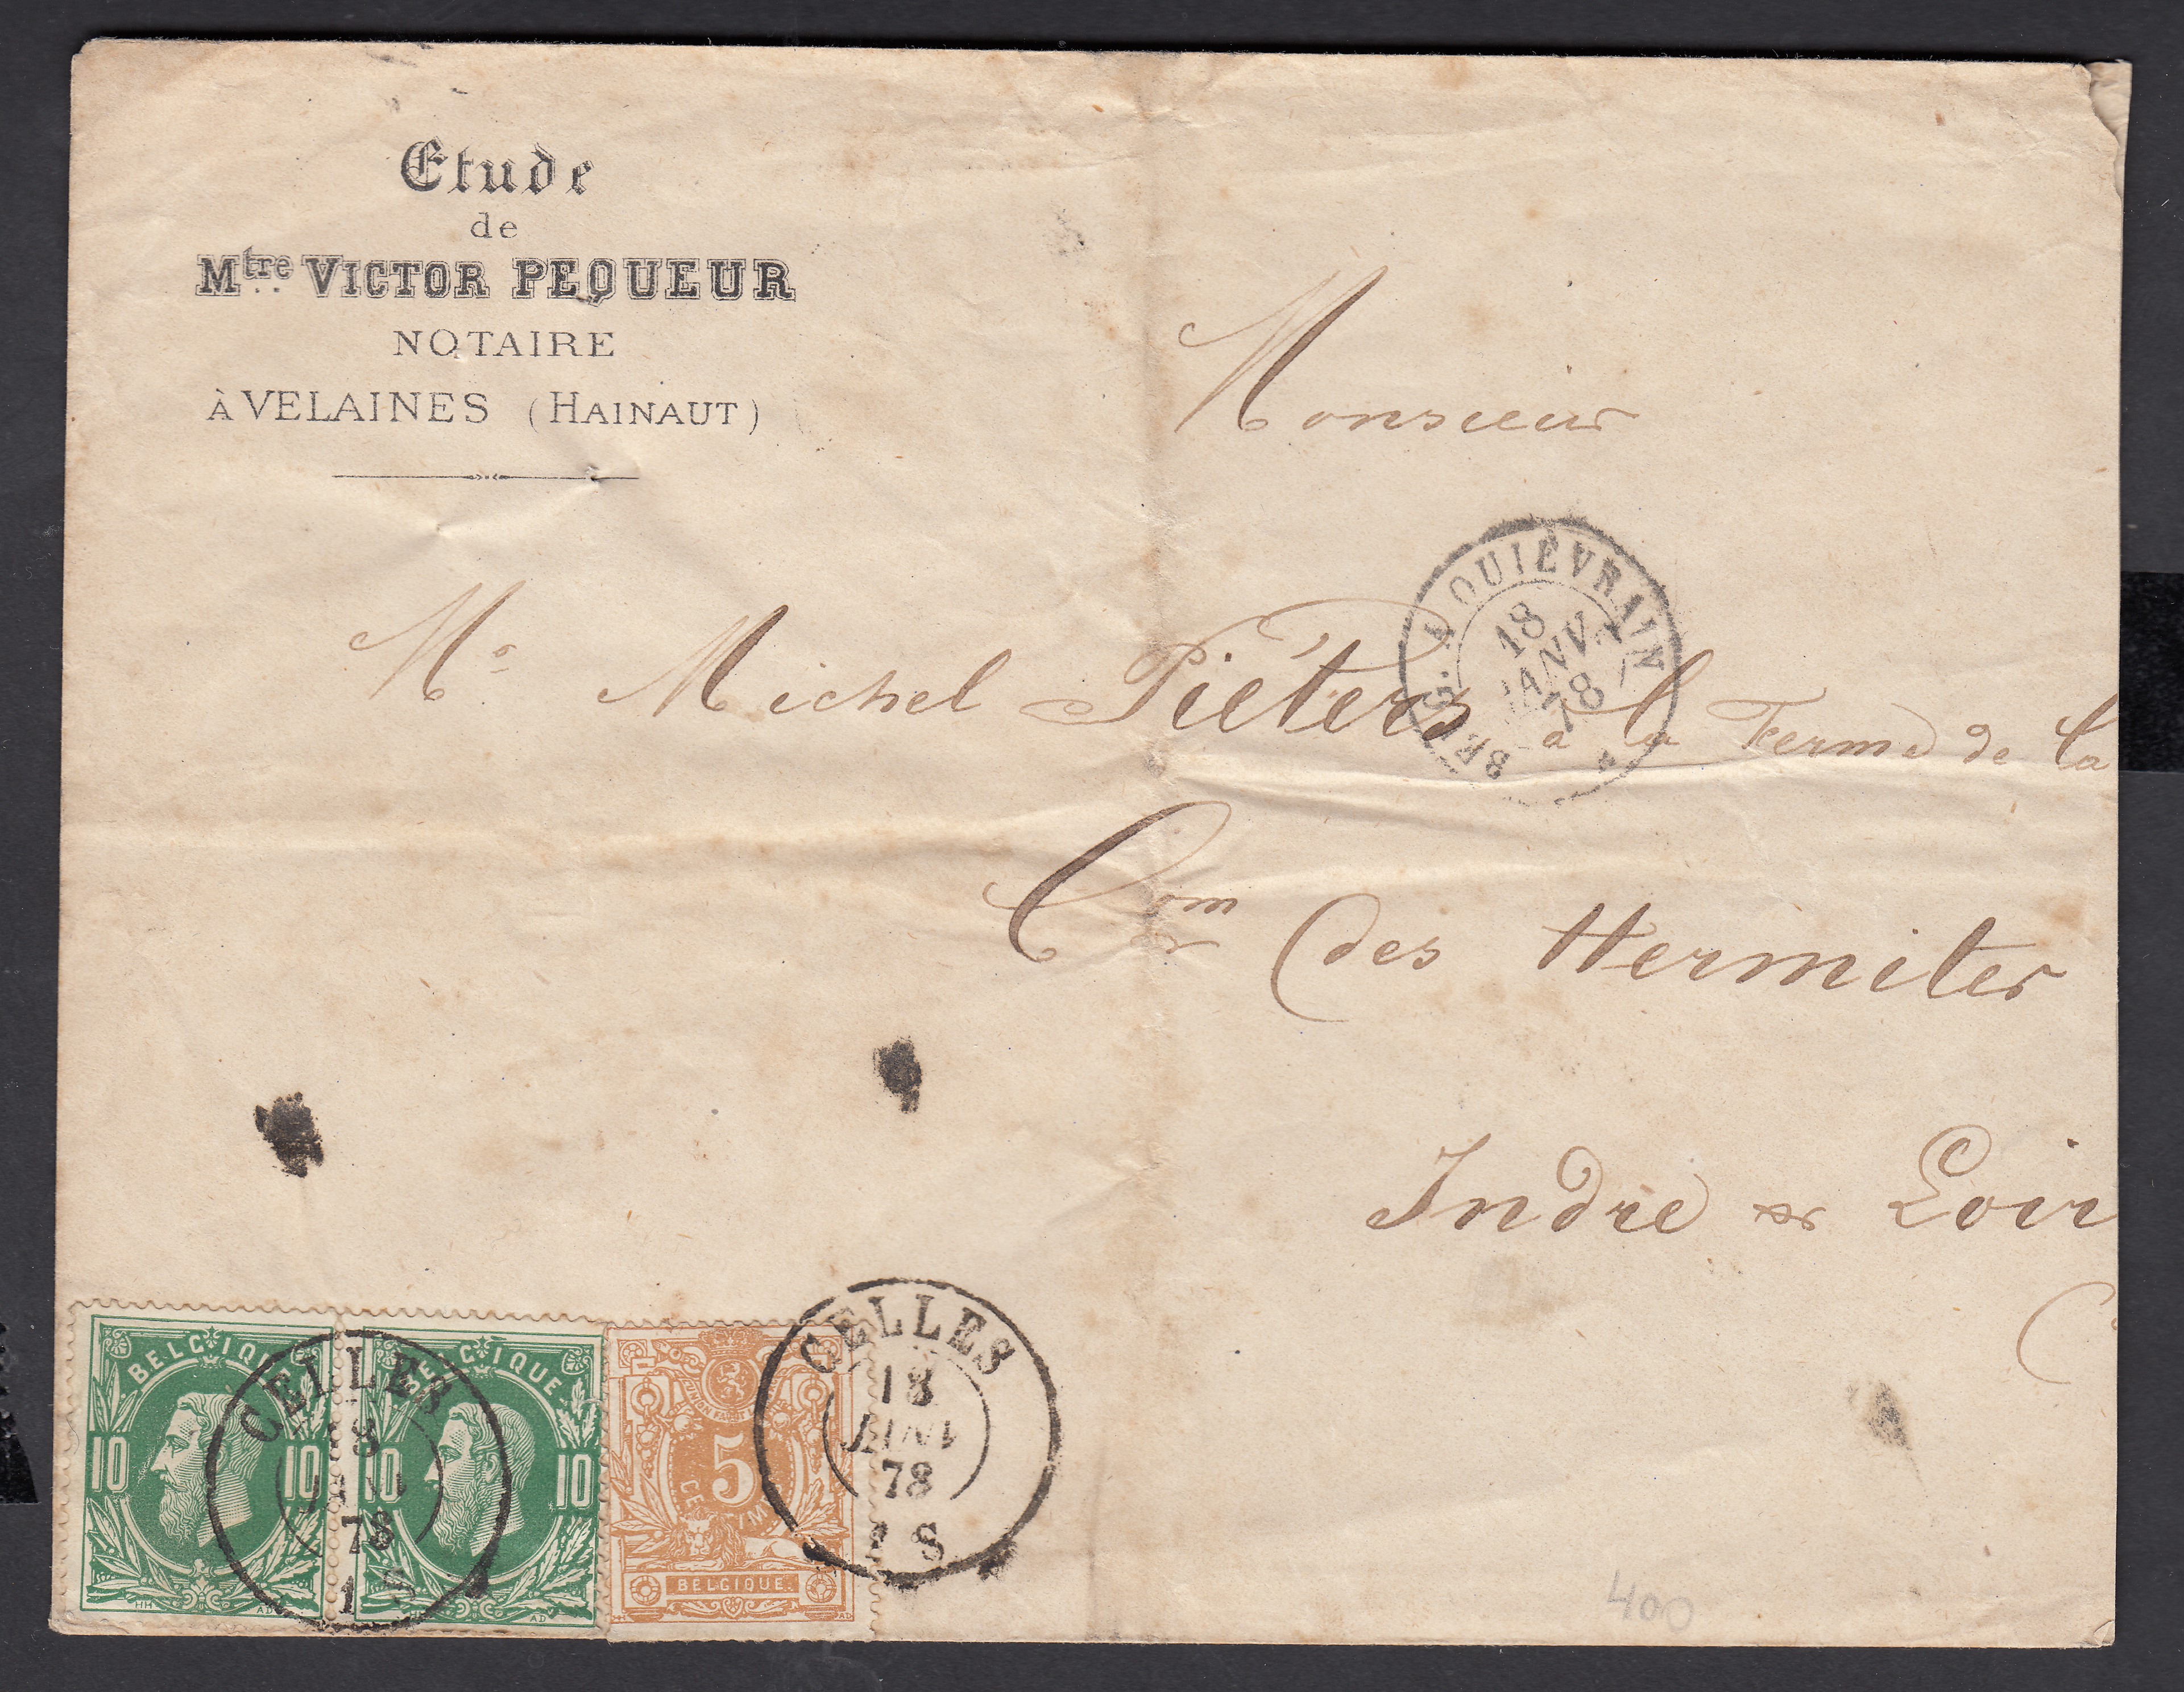 Etude
de
Mtre VICTOR PEQUEUR
NOTAIRE
À VELAINES (HAINAUT)
Monsieur
Mr Michel Piéters à la Ferme de la
Com des Hermites
Indre & Loir
QUIÉVRAIN
18
JANV.
78
BELGIQUE
10 10
BELGIQUE
10 10
CELLES
18
JANV
78
1 S
5
CELLES
18
JANV
78
S
BELGIQUE.
HH AD
HH AD
400